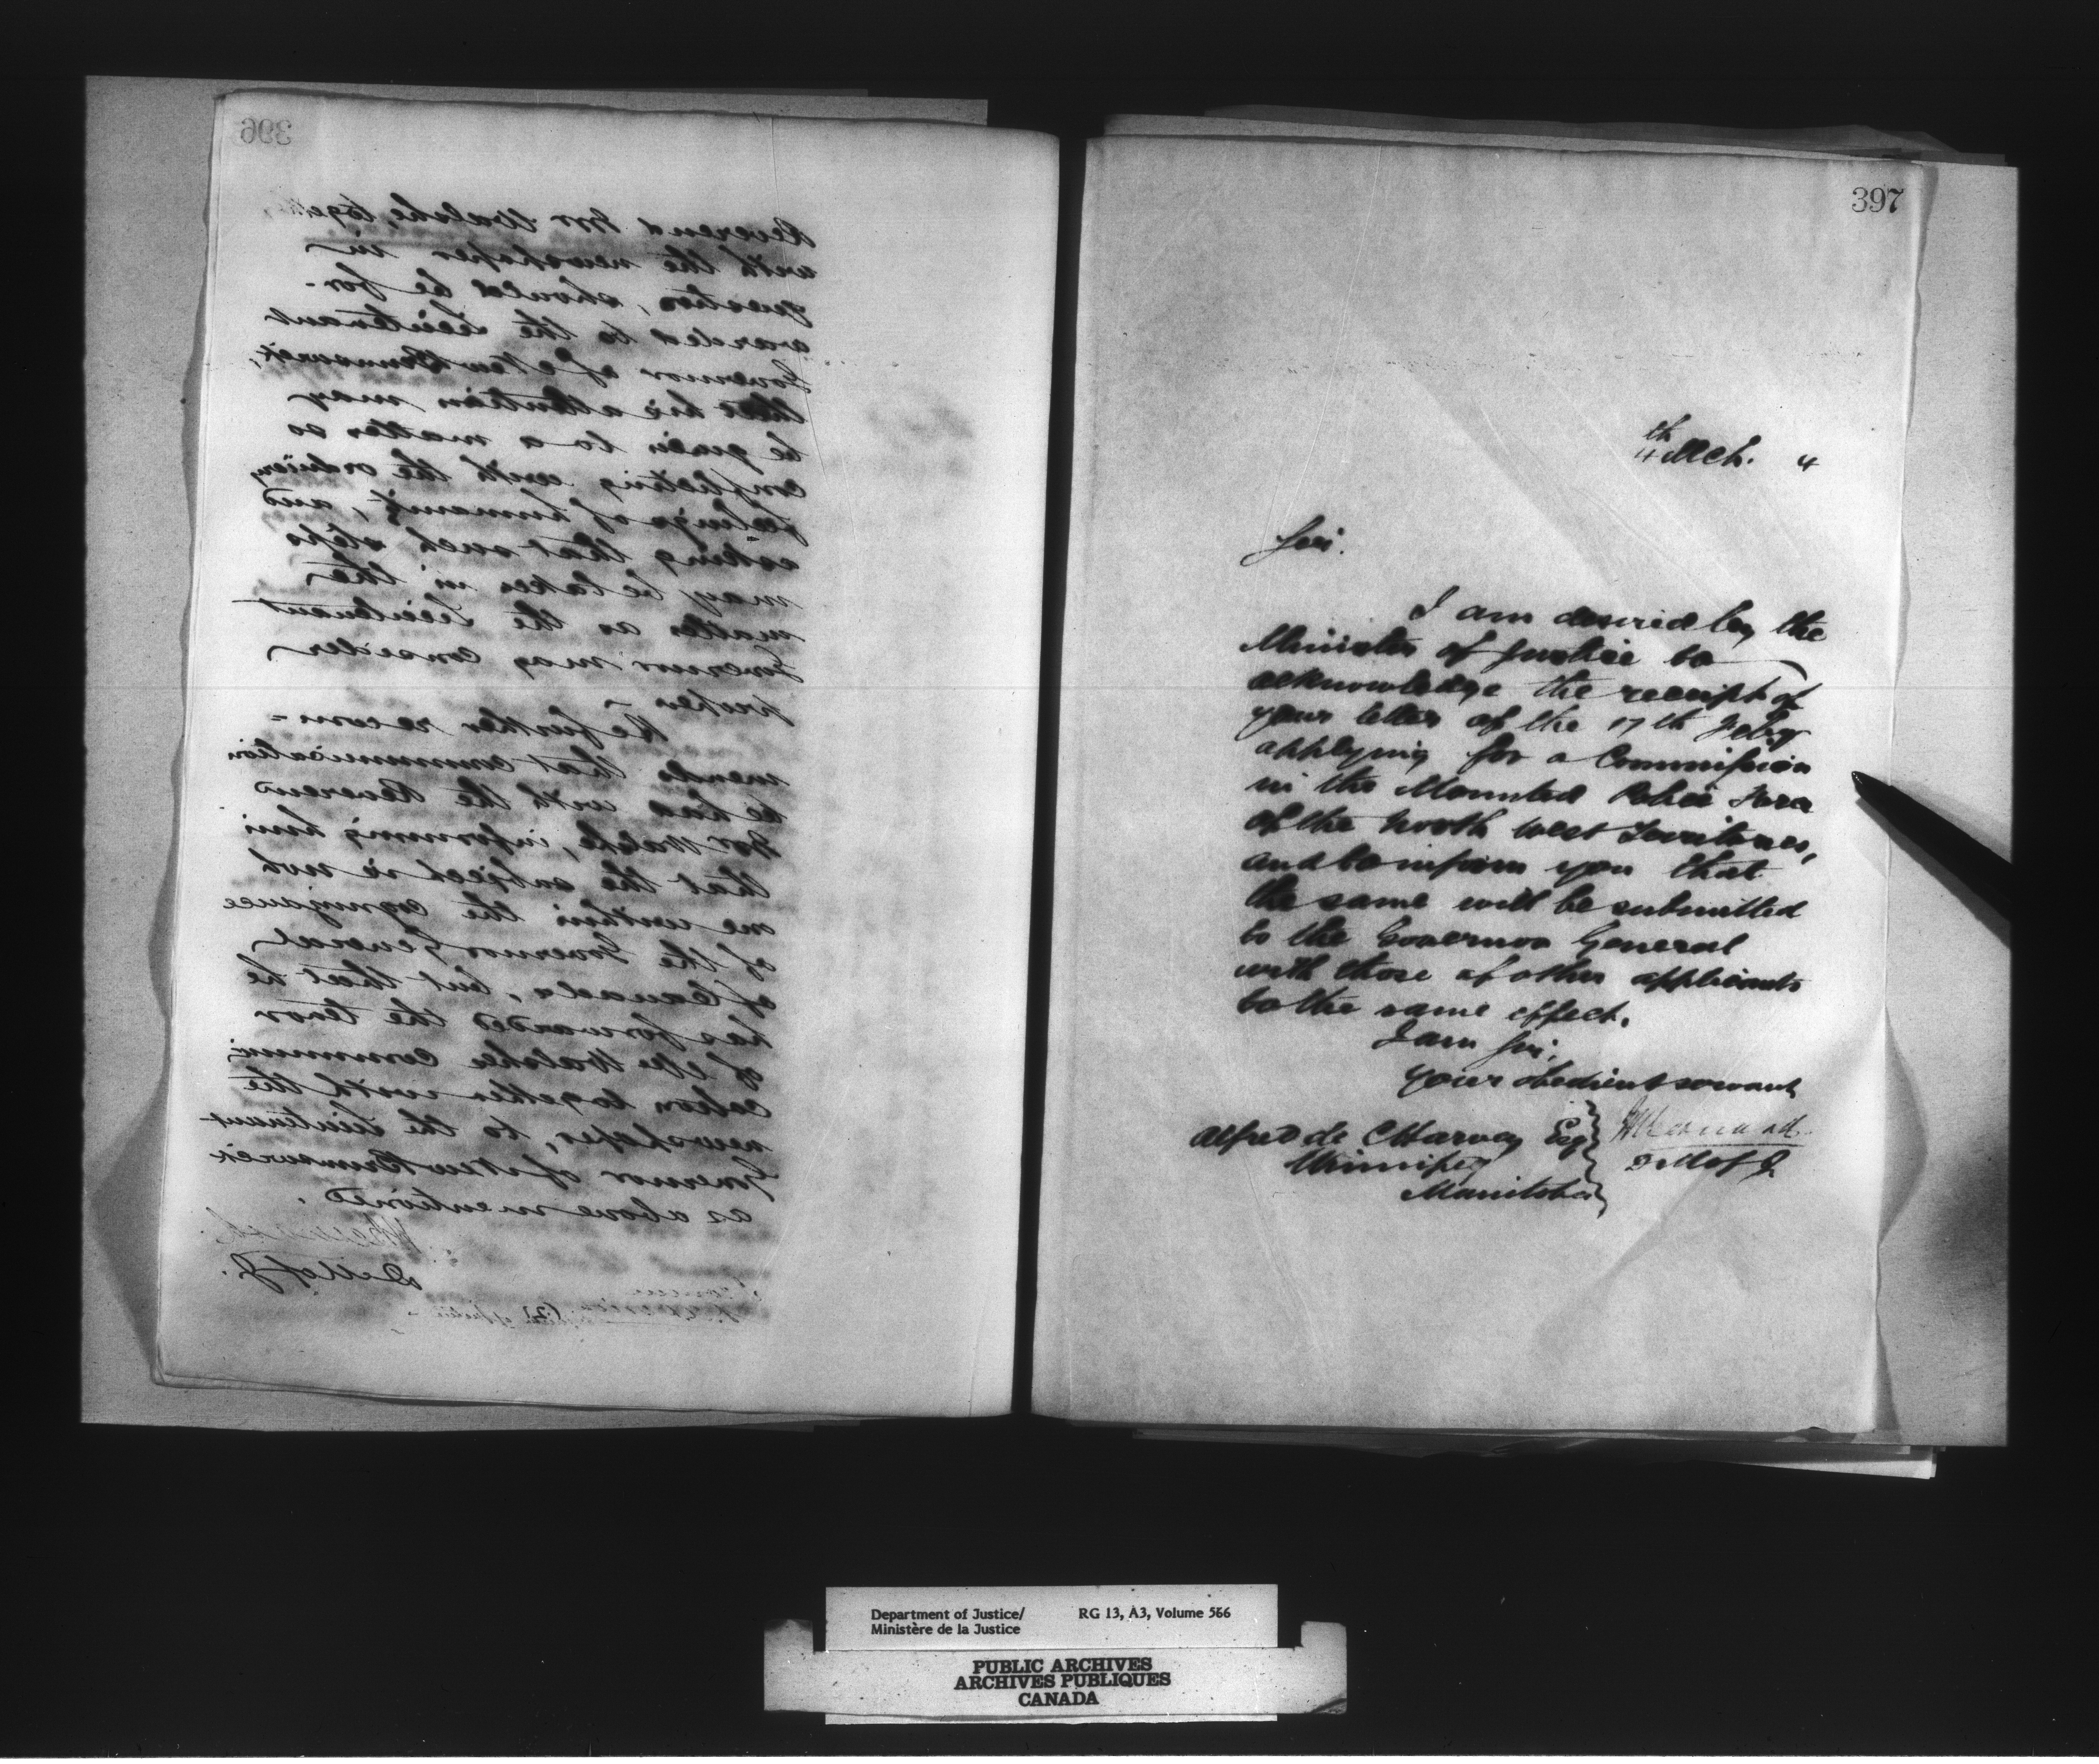 396
Reverend Mr Walshe, together
with the newspaper in
question, should be for-
warded to the Lieutenant
Governor of New Brunswick,
that his attention may
be given to a matter so
conflicting with the ordinary
feelings of humanity, and
asking that such steps
may be taken in the
matter as the Lieutenant
Governor may consider
proper -
He further recom-
mends that communication
be had with the Reverend
Mr Walshe, informing him
that the subject is not
one within the cognizance
of the Governor General
of Canada, but that he
has forwarded the tenor
of Mr Walshe communi
cation together with the
newspaper, to the Lieutenant
Governor of New Brunswick
as above mentioned.
D. M of J.
397
4th Mch. 4
Sir.
I am desired by the
Minister of Justice to
acknowledge the receipt of
your letter of the 17th Feby
applying for a Commission
in the Mounted Police Force
of the North West Territories,
and to inform you that
the same will be submitted
to the Governor General
with those of other applicants
to the same effect.
I am Sir,
your obedient servant
Alfred de C Harvey Esq
Winnipeg
Manitoba
D M of J.
Department of Justice/ RG 13, A3, Volume 566
Ministère de la Justice
PUBLIC ARCHIVES
ARCHIVES PUBLIQUES
CANADA